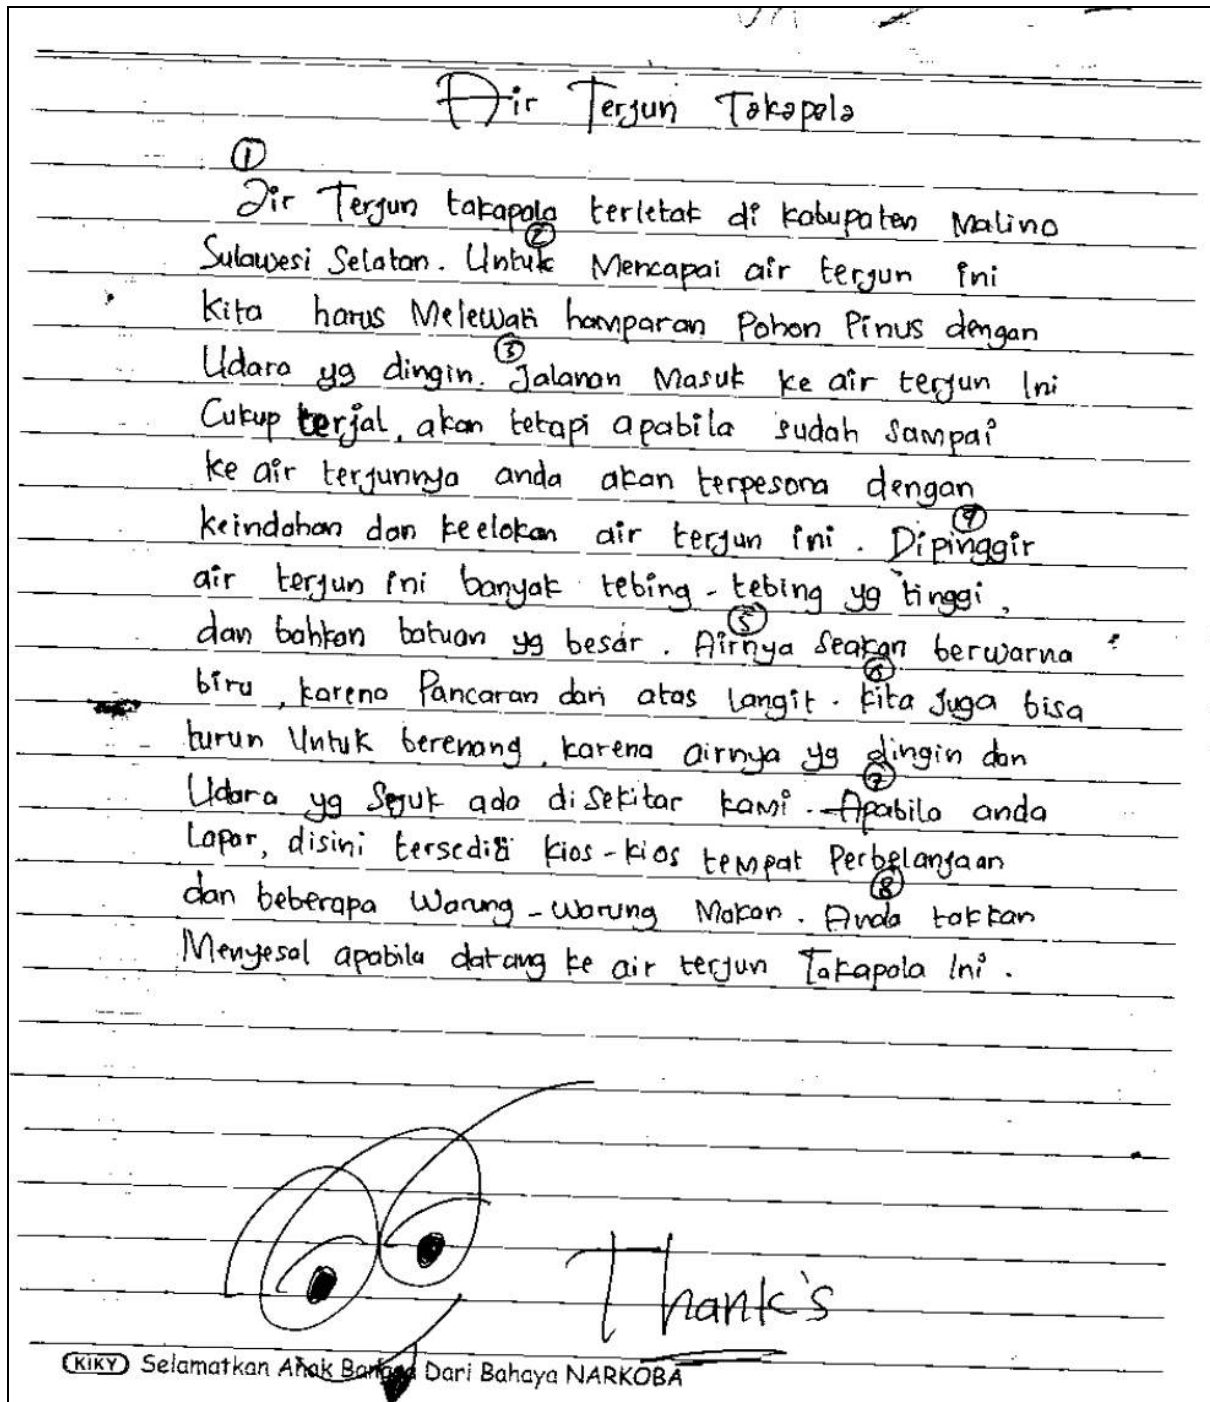 Air Terjun Takapala
①
Air Terjun takapala terletak di kabupaten Malino
②
Sulawesi Selatan. Untuk Mencapai air terjun ini
kita harus Melewati hamparan Pohon Pinus dengan
③
Udara yg dingin. Jalanan Masuk ke air terjun Ini
Cukup terjal, akan tetapi apabila sudah sampai
ke air terjunnya anda akan terpesona dengan
④
keindahan dan keelokan air terjun ini. Dipinggir
air terjun ini banyak tebing-tebing yg tinggi,
⑤
dan bahkan batuan yg besar. Airnya seakan berwarna
⑥
biru, karena Pancaran dari atas langit. kita Juga bisa
turun Untuk berenang, karena airnya yg dingin dan
⑦
Udara yg Sejuk ada disekitar kami. Apabila anda
Lapar, disini tersedia kios-kios tempat Perbelanjaan
⑧
dan beberapa Warung-warung Makan. Anda takkan
Menyesal apabila datang ke air terjun Takapala Ini.
Thank's
KIKY Selamatkan Anak Bangsa Dari Bahaya NARKOBA